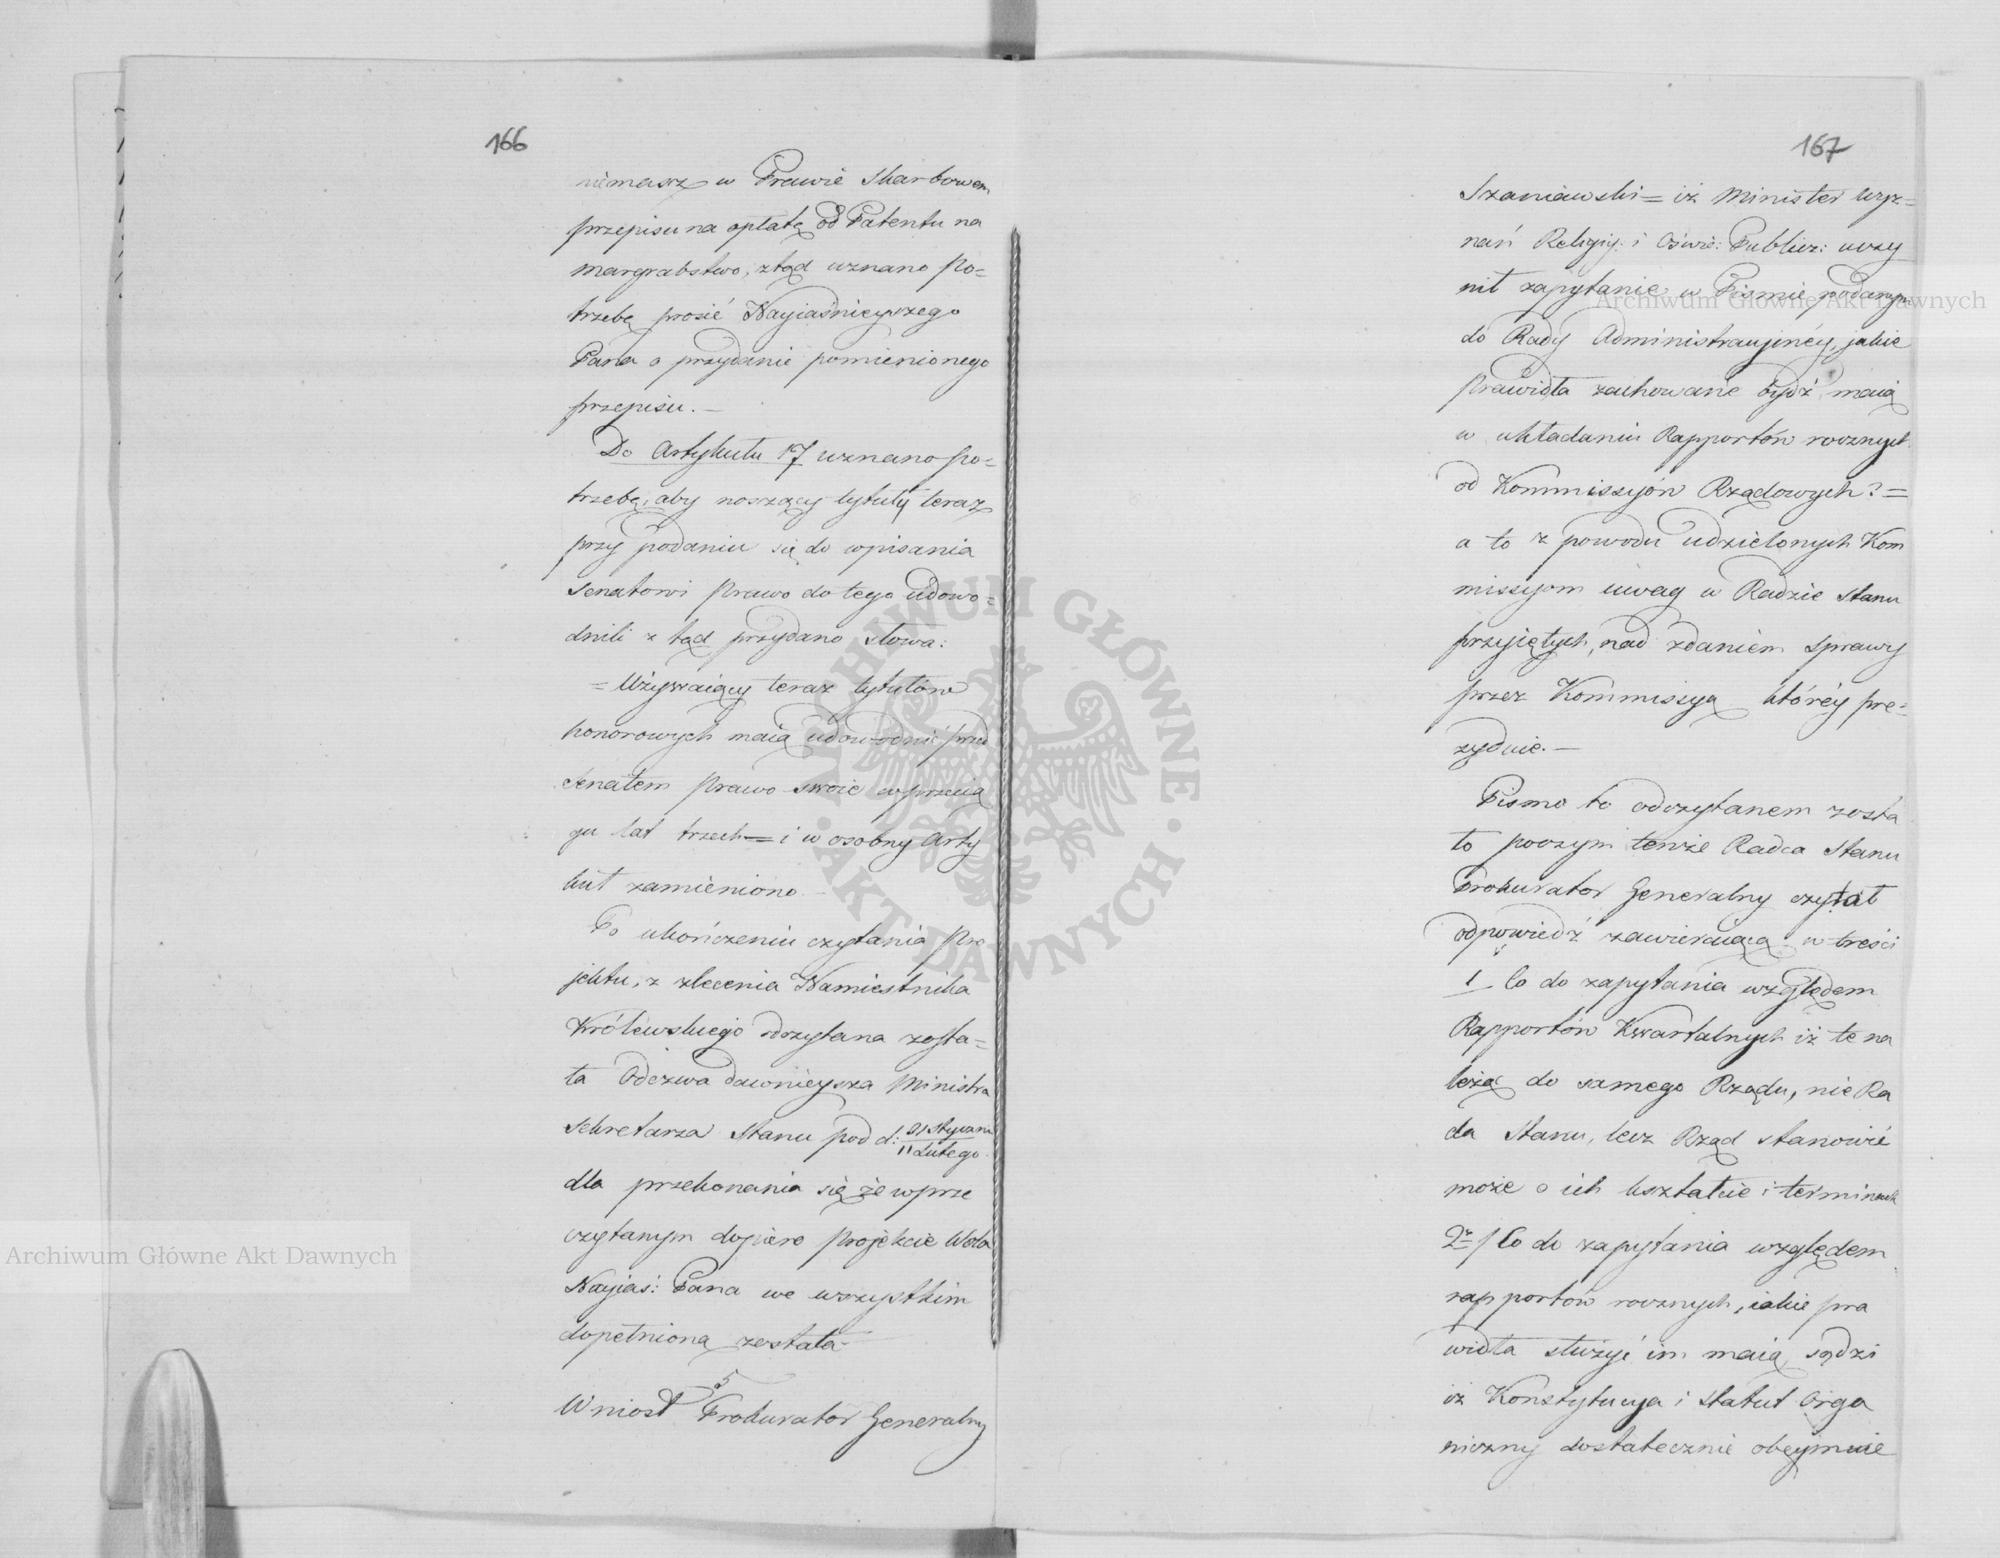 166
niemasz w Prawie Skarbowem
przepisu na opłatę od Patentu na
margrabstwo, ztąd uznano po=
trzebę prosić Nayiaśnieyszego
Pana o przydanie pomienionego
przepisu. —
Do Artykułu 17 uznano po=
trzebę, aby noszący tytuły teraz
przy podaniu się do wpisania
Senatowi prawo do tego udowo=
dnili z tąd przydano słowa:
= Używaiący teraz tytułów
honorowych maią udowodnić przed
Senatem prawo swoie w przecią
gu lat trzech = i w osobny Arty
kuł zamieniono —
Po ukończeniu czytania Pro
jektu, z zlecenia Namiestnika
Królewskiego odczytana zosta=
ła Odezwa dawnieysza Ministra
Sekretarza Stanu pod d: 31 Stycznia
11 Lutego
dla przekonania się że w prze
czytanym dopiero projekcie Wola
Nayiaś: Pana we wszystkim
dopełnioną została —
5
Wniosł Prokurator Generalny
167
Szaniawski = iż Minister Wyz=
nań Religiy: i Oświe: Publicz: uczy
nił zapytanie w Piśmie podanym
do Rady Administracyinéy, jakie
prawidła zachowane bydź maią
w układaniu Rapportów rocznych
od Kommissyów Rządowych? =
a to z powodu udzielonych Kom
missyom uwag w Radzie Stanu
przyiętych, nad zdaniem sprawy
przez Kommissyą któréy pre=
zyduie. —
Pismo to odczytanem zosta
ło poczym tenże Radca Stanu
Prokurator Generalny czytał
odpowiedź zawieraiącą w treści
1 Co do zapytania względem
Rapportów Kwartalnych iż te na
leżą do samego Rządu, nie Ra
da Stanu, lecz Rząd stanowić
może o ich kształcie i terminach
2re / Co do zapytania względem
rapportów rocznych, iakie pra
widła służyć im maią, sądzi
iż Konstytucya i Statut Orga
niczny dostatecznie obeymuie
Archiwum Główne Akt Dawnych
Archiwum Główne Akt Dawnych
ARCHIWUM GŁÓWNE AKT DAWNYCH